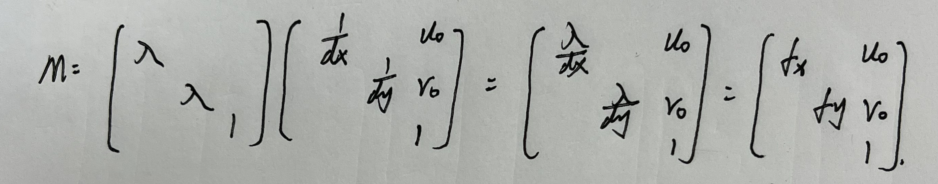 M = \begin{bmatrix} \lambda & & \\ & \lambda & \\ & & 1 \end{bmatrix} \begin{bmatrix} \frac{1}{dx} & & u_0 \\ & \frac{1}{dy} & v_0 \\ & & 1 \end{bmatrix} = \begin{bmatrix} \frac{\lambda}{dx} & & u_0 \\ & \frac{\lambda}{dy} & v_0 \\ & & 1 \end{bmatrix} = \begin{bmatrix} f_x & & u_0 \\ & f_y & v_0 \\ & & 1 \end{bmatrix}.